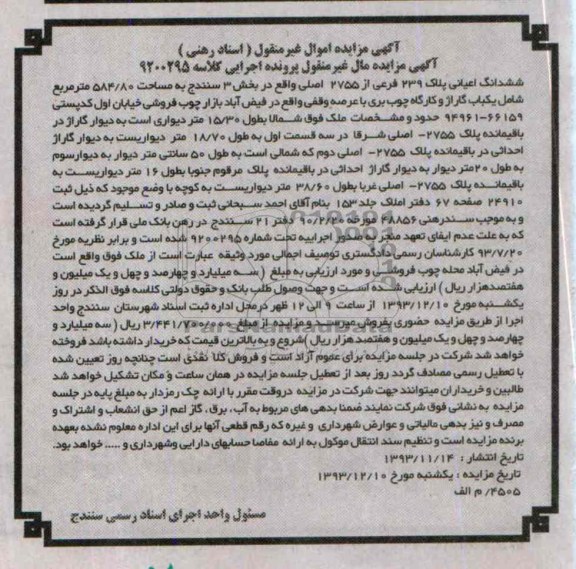 آگهی مزایده اموال غیرمنقول ( اسناد رهنی )
آگهی مزایده مال غیرمنقول پرونده اجرایی کلاسه ۹۲۰۰۲۹۵
ششدانگ اعیانی پلاک ۲۳۹ فرعی از ۲۷۵۵ اصلی واقع در بخش ۳ سنندج به مساحت ۵۸۴/۸۰ مترمربع
شامل یکباب گاراژ و کارگاه چوب بری با عرصه وقفی واقع در فیض آباد بازار چوب فروشی خیابان اول کدپستی
۶۶۱۵۹-۹۴۹۶۱ حدود و مشخصات ملک فوق شمالا بطول ۱۵/۳۰ متر دیواری است به دیوار گاراژ در
باقیمانده پلاک ۲۷۵۵- اصلی شرقا در سه قسمت اول به طول ۱۸/۷۰ متر دیواریست به دیوار گاراژ
احداثی در باقیمانده پلاک ۲۷۵۵- اصلی دوم که شمالی است به طول ۵۰ سانتی متر دیوار به دیوارسوم
به طول ۲۰متر دیوار به دیوار گاراژ احداثی در باقیمانده پلاک مرقوم جنوبا بطول ۱۶ متر دیواریست به
باقیمانده پلاک ۲۷۵۵- اصلی غربا بطول ۳۸/۶۰ متر دیواریست به کوچه با وضع موجود که ذیل ثبت
۲۴۹۱۰ صفحه ۶۷ دفتر املاک جلد۱۵۳ بنام آقای احمد سبحانی ثبت و صادر و تسلیم گردیده است
و به موجب سندرهنی ۴۸۸۵۶ مورخه ۹۰/۲/۸ دفتر ۲۱ سنندج در رهن بانک ملی قرار گرفته است
که به علت عدم ایفای تعهد منجر به صدور اجراییه تحت شماره ۹۲۰۰۲۹۵ شده است و برابر نظریه مورخ
۹۳/۷/۲۰ کارشناسان رسمی دادگستری توصیف اجمالی مورد وثیقه عبارت است از ملک فوق واقع است
در فیض آباد محله چوب فروشی و مورد ارزیابی به مبلغ ( سه میلیارد و چهارصد و چهل و یک میلیون و
هفتصدهزار ریال ) ارزیابی شده است و جهت وصول طلب بانک و حقوق دولتی کلاسه فوق الذکر در روز
یکشنبه مورخ ۱۳۹۳/۱۲/۱۰ از ساعت ۹ الی ۱۲ ظهر درمحل اداره ثبت اسناد شهرستان سنندج واحد
اجرا از طریق مزایده حضوری بفروش میرسد و مزایده از مبلغ ۳/۴۴۱/۷۰۰/۰۰۰ ریال ( سه میلیارد و
چهارصد و چهل و یک میلیون و هفتصد هزار ریال )شروع و به بالاترین قیمت که خریدار داشته باشد فروخته
خواهد شد شرکت در جلسه مزایده برای عموم آزاد است و فروش کلا نقدی است چنانچه روز تعیین شده
با تعطیل رسمی مصادف گردد روز بعد از تعطیل جلسه مزایده در همان ساعت و مکان تشکیل خواهد شد
طالبین و خریداران میتوانند جهت شرکت در مزایده دروقت مقرر با ارائه چک رمزدار به مبلغ پایه در جلسه
مزایده به نشانی فوق شرکت نمایند ضمنا بدهی های مربوط به آب ، برق ، گاز اعم از حق انشعاب و اشتراک و
مصرف و نیز بدهی مالیاتی و عوارض شهرداری و غیره که رقم قطعی آنها برای این اداره معلوم نشده بعهده
برنده مزایده است و تنظیم سند انتقال موکول به ارائه مفاصا حسابهای دارایی وشهرداری و ..... خواهد بود.
تاریخ انتشار : ۱۳۹۳/۱۱/۱۴
تاریخ مزایده : یکشنبه مورخ ۱۳۹۳/۱۲/۱۰
۴۵۰۵/ م الف
مسئول واحد اجرای اسناد رسمی سنندج